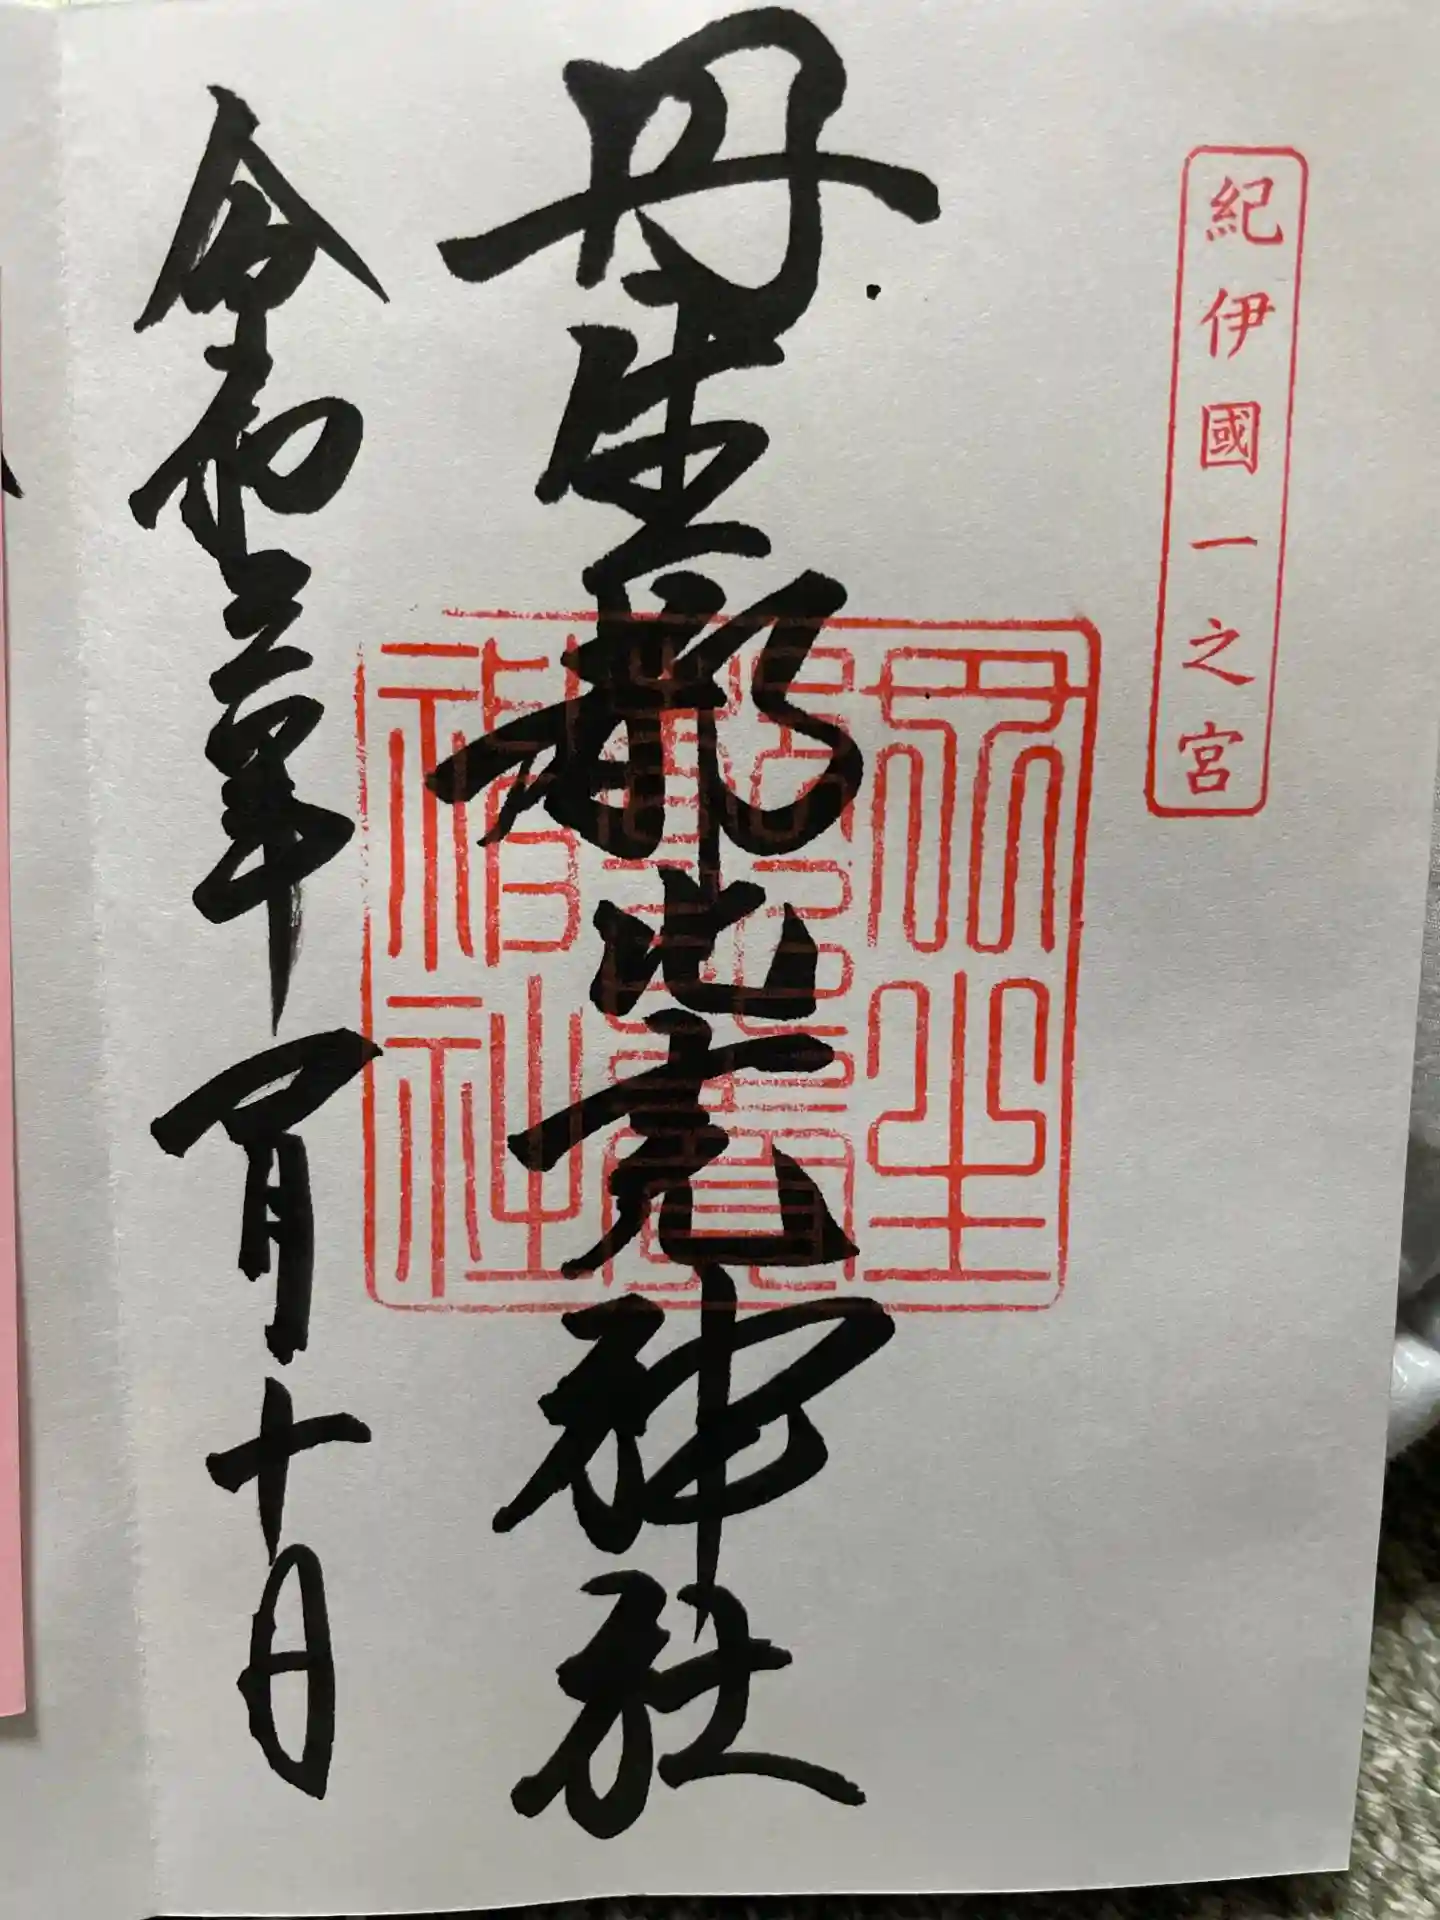 紀伊國一之宮
丹生都比売神社
丹生
都比賣
神社
令和三年月十日